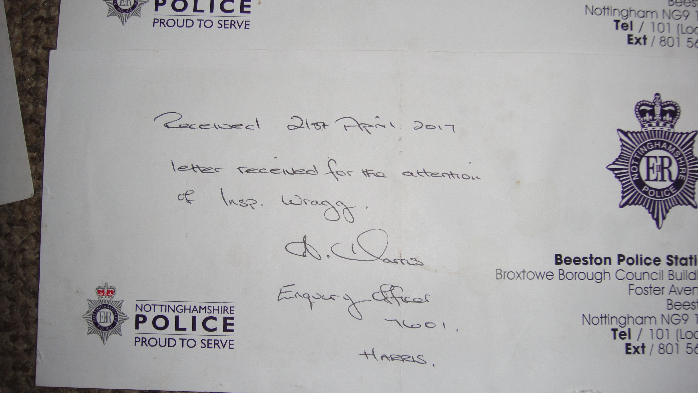 POLICE
PROUD TO SERVE
Beest
Nottingham NG9 1
Tel / 101 (Loc
Ext / 801 56
Received 21st April 2017
letter received for the attention
of Insp. Wragg.
Enquiry Officer
7601.
HARRIS.
NOTTINGHAMSHIRE
POLICE
PROUD TO SERVE
NOTTINGHAMSHIRE
ER
POLICE
Beeston Police Stati
Broxtowe Borough Council Build
Foster Aven
Beest
Nottingham NG9 1
Tel / 101 (Loc
Ext / 801 56